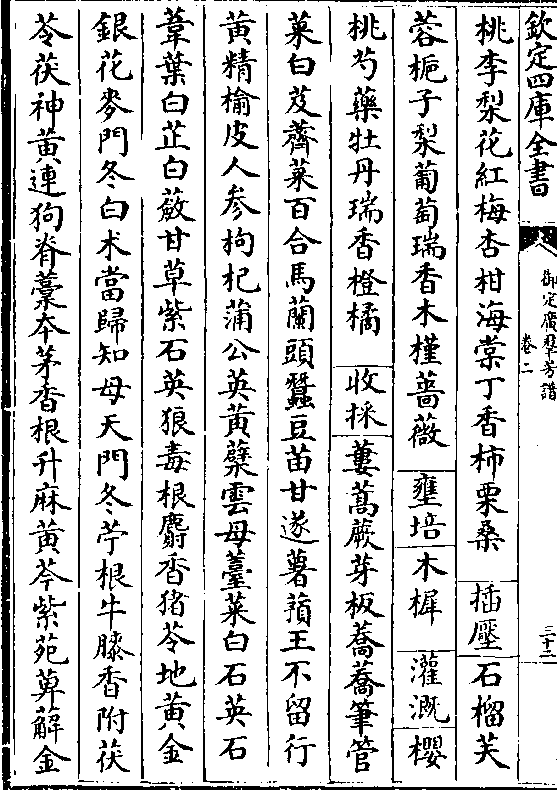 欽定四庫全書
御定廣羣芳譜
卷二
三十二
桃李梨花紅梅杏柑海棠丁香柿栗桑 插壓 石榴芙
蓉梔子梨葡萄瑞香木槿薔薇 壅培 木樨 灌溉 櫻
桃芍藥牡丹瑞香橙橘 收採 蔞蒿蕨芽板蕎蕎筆管
菜白芨薺菜百合馬蘭頭蠶豆苗甘遂薯蕷王不留行
黄精榆皮人參枸杞蒲公英黄蘗雲母薹菜白石英石
葦葉白芷白蘞甘草紫石英狼毒根麝香猪苓地黄金
銀花麥門冬白术當歸知母天門冬苧根牛膝香附茯
苓茯神黄連狗脊藁本茅香根升麻黄芩紫苑萆解金